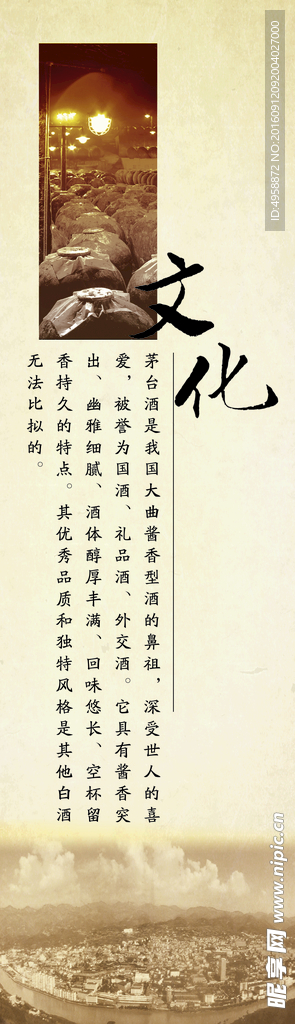 文化
茅台酒是我国大曲酱香型酒的鼻祖，深受世人的喜
爱，被誉为国酒、礼品酒、外交酒。它具有酱香突
出、幽雅细腻、酒体醇厚丰满、回味悠长、空杯留
香持久的特点。其优秀品质和独特风格是其他白酒
无法比拟的。
ID:4958872 NO:20160912092004027000
昵享网 www.nipic.cn